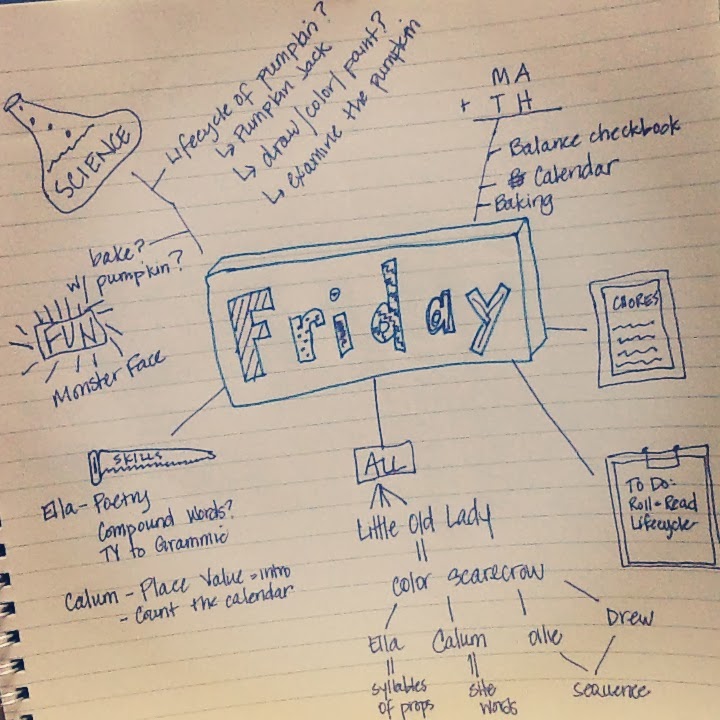 SCIENCE
Lifecycle of pumpkin?
↳ Pumpkin Jack
↳ draw/color/paint?
↳ examine the pumpkin
bake?
w/ pumpkin?
MA
+ TH
- Balance checkbook
- Calendar
- Baking
Friday
FUN
Monster Face
CHORES
SKILLS
Ella - Poetry
Compound Words?
TY to Grammie
Calum - Place Value = intro
- Count the calendar
ALL
Little Old Lady
color scarecrow
Ella
Calum
Olie
Drew
syllables
of props
site
words
sequence
To Do:
Roll-n-Read
Lifecycle